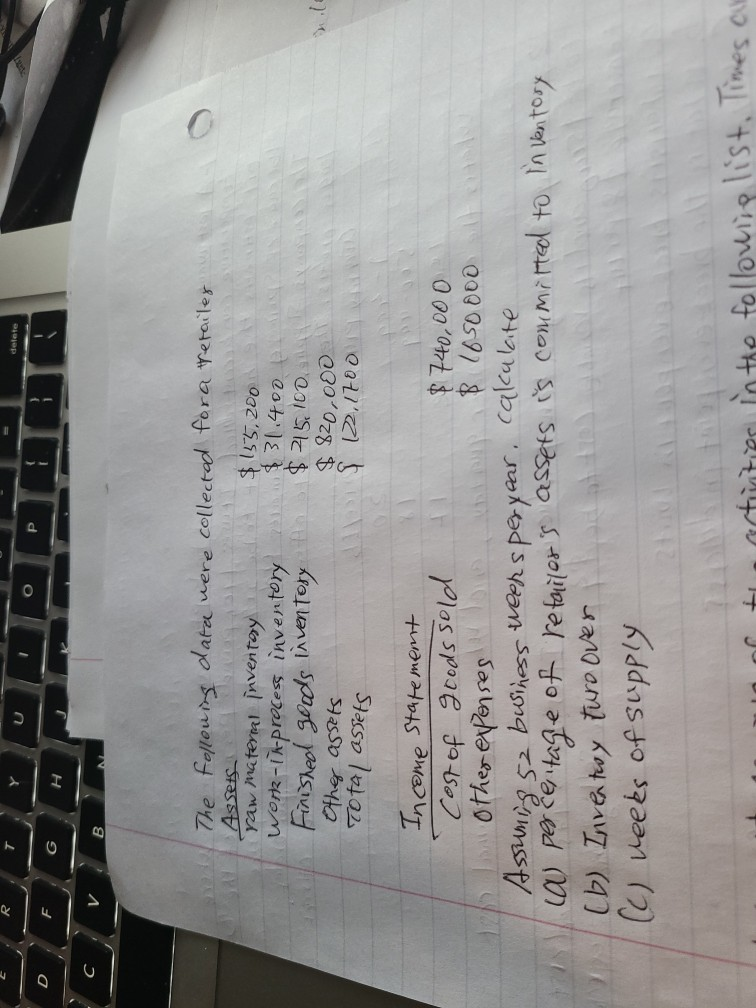 The following data were collected for a retailer
Assets
raw material inventory $ 155,200
work-in-process inventory $ 31.400
Finished goods inventory $ 215,100
Other assets $ 820,000
Total assets $ 122,1700
Income statement
Cost of goods sold $ 740,000
Other expenses $ 1650000
Assuming 52 business weeks per year, calculate
(a) percentage of retailor's assets is committed to inventory
(b) Inventory turo over
(c) weeks of supply
activities in the following list. Times
delete
E R T Y U I O P
D F G H J K
C V B N